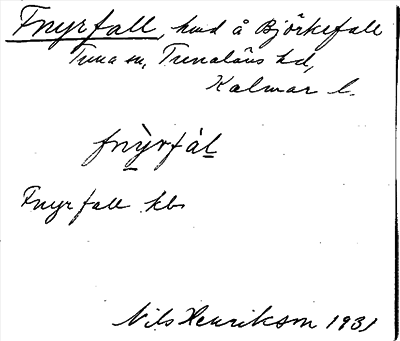 Fnyrfall, hmd å Björkefall
Tuna sn, Tunaläns hd,
Kalmar l.
fnỳrfál
Fnyrfall kbs
Nils Henrikson 1931